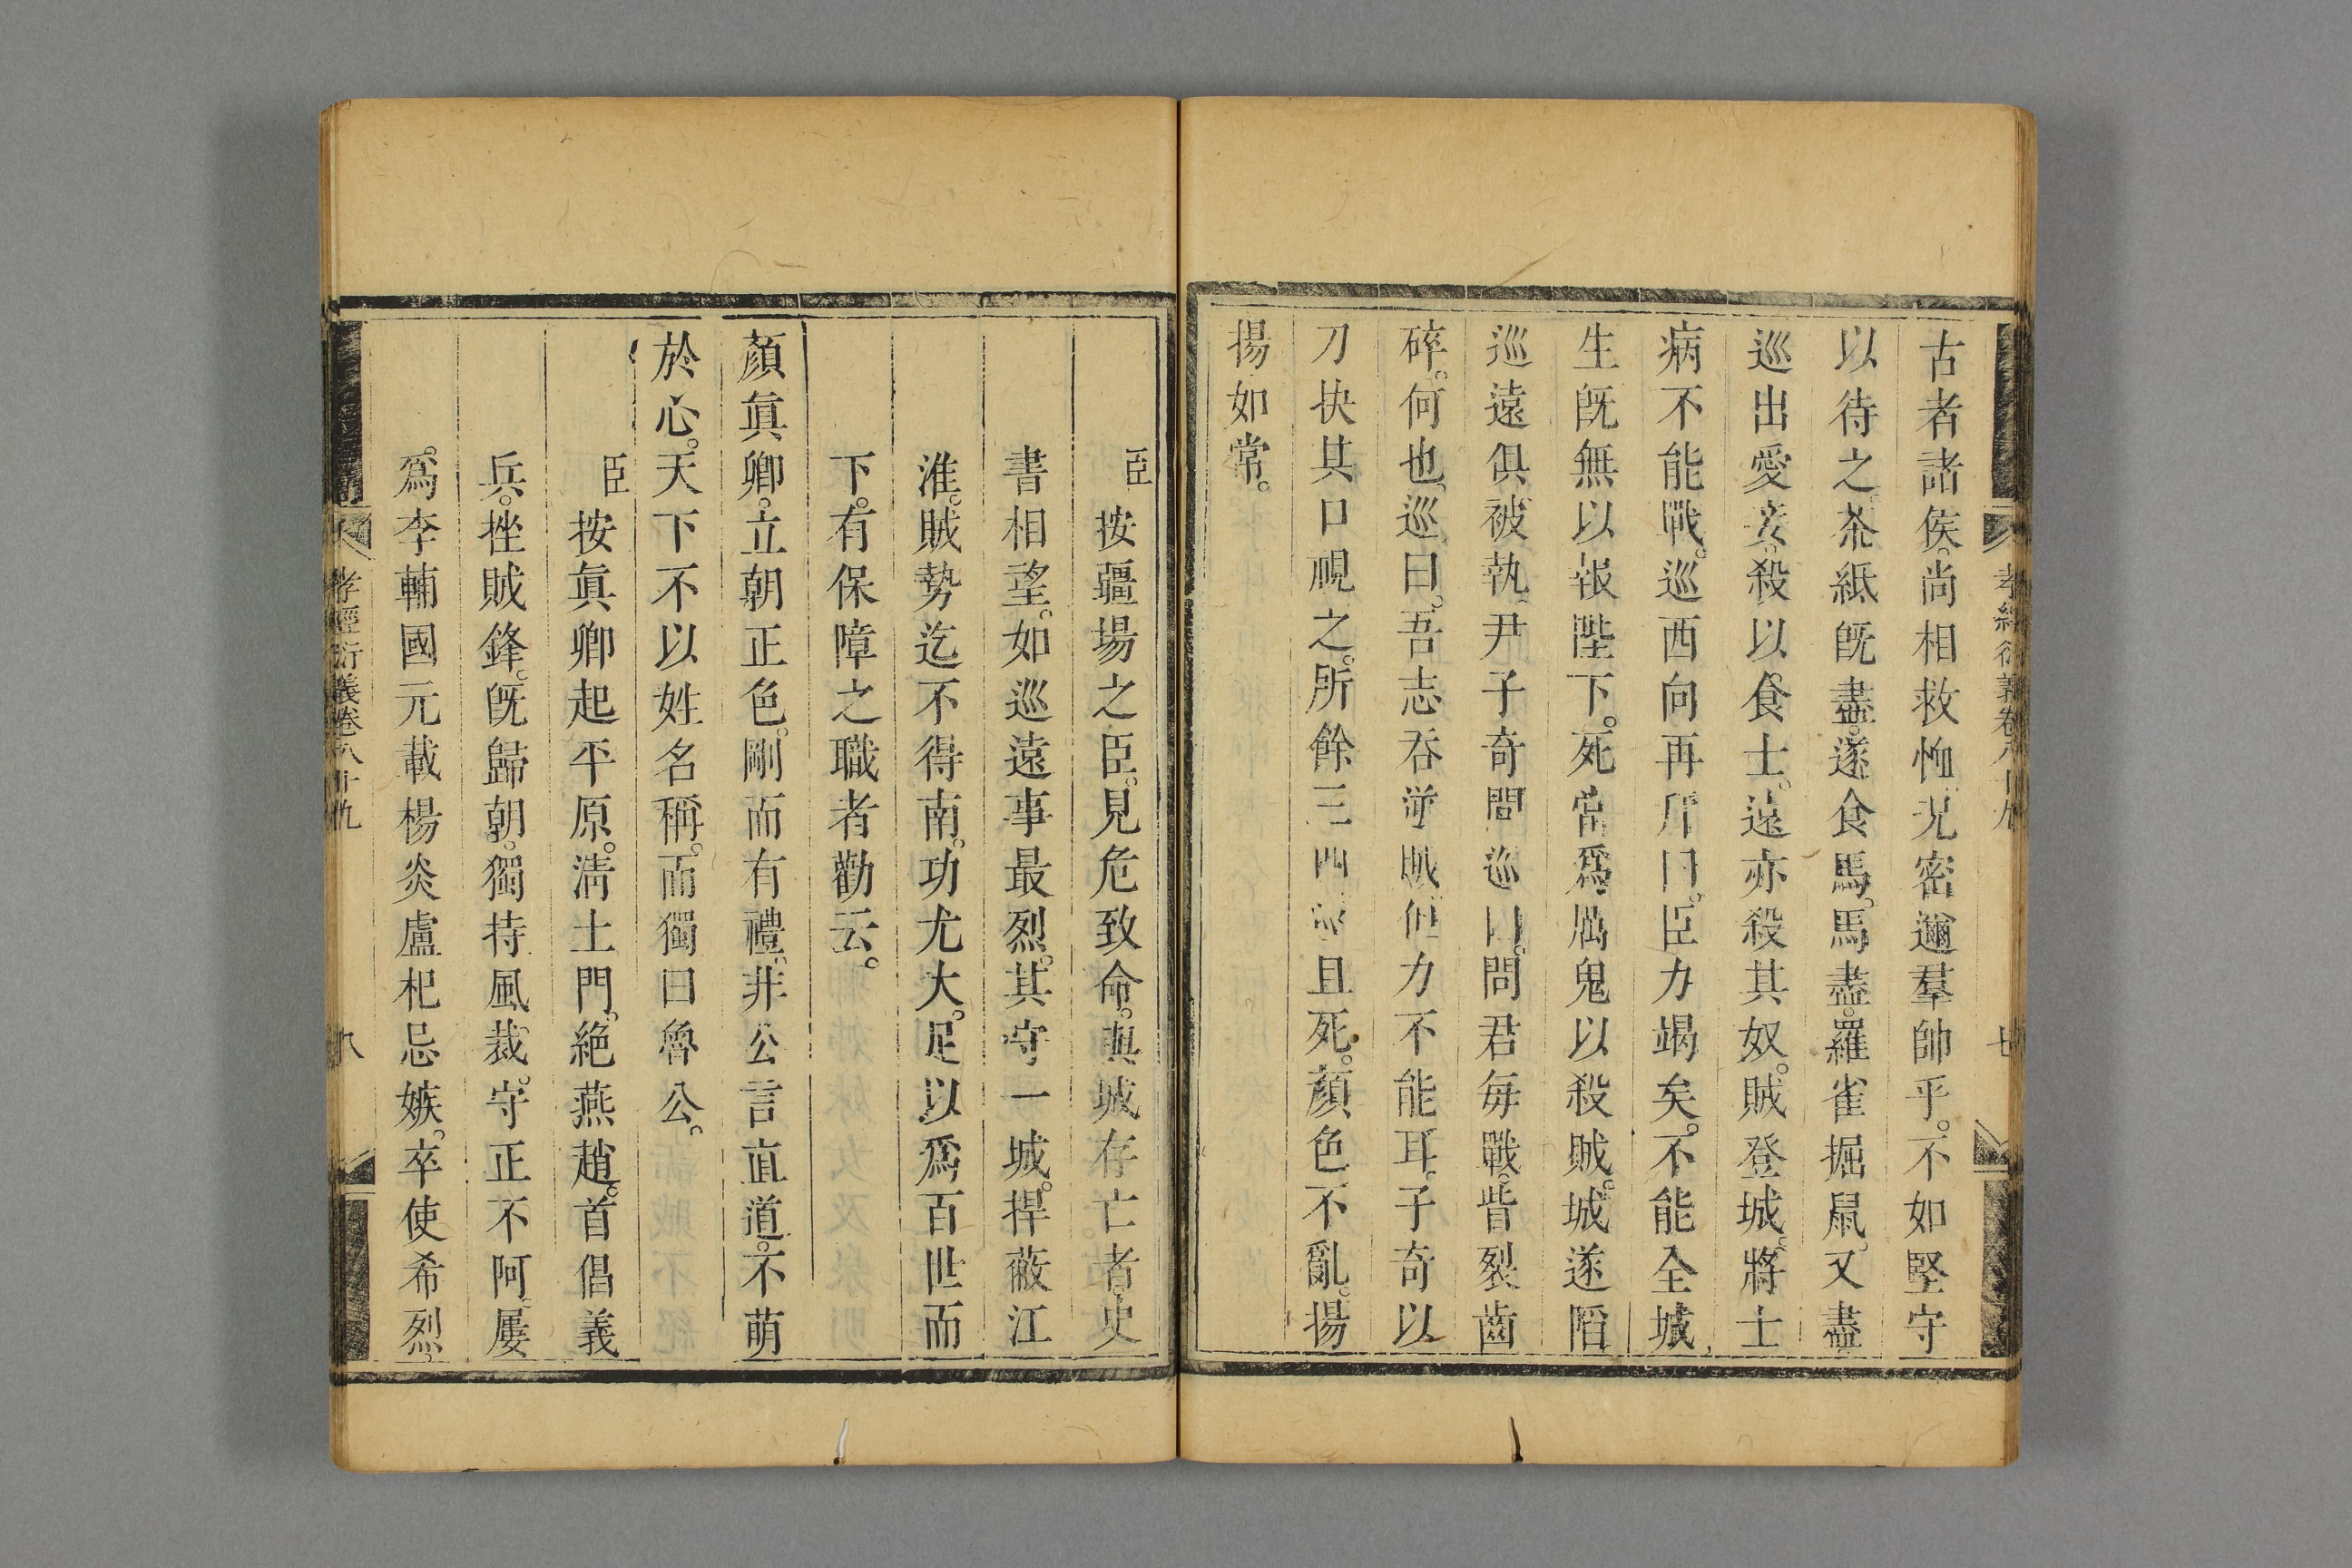 古者諸侯。尚相救恤。況密邇羣帥乎。不如堅守
以待之。茶紙旣盡。遂食馬。馬盡。羅雀掘鼠。又盡。
巡出愛妾。殺以食士。遠亦殺其奴。賊登城。將士
病不能戰。巡西向再拜曰。臣力竭矣。不能全城。
生旣無以報陛下。死當爲厲鬼以殺賊。城遂陷。
巡遠俱被執。尹子奇問巡曰。問君每戰。眥裂齒
碎。何也。巡曰。吾志吞逆賊。但力不能耳。子奇以
刀抉其口視之。所餘三四。 且死。顏色不亂。揚
揚如常。
孝經衍義卷八十九
七
臣按疆場之臣。見危致命。與城存亡者。史
書相望。如巡遠事最烈。其守一城。捍蔽江
淮。賊勢迄不得南。功尤大。足以爲百世而
下。有保障之職者勸云。
顏眞卿。立朝正色。剛而有禮。非公言直道。不萌
於心。天下不以姓名稱。而獨曰魯公。
臣按眞卿起平原。淸土門。絕燕趙。首倡義
兵。挫賊鋒。旣歸朝。獨持風裁。守正不阿。屢
爲李輔國元載楊炎盧杞忌嫉。卒使希烈。
孝經衍義卷八十九
八